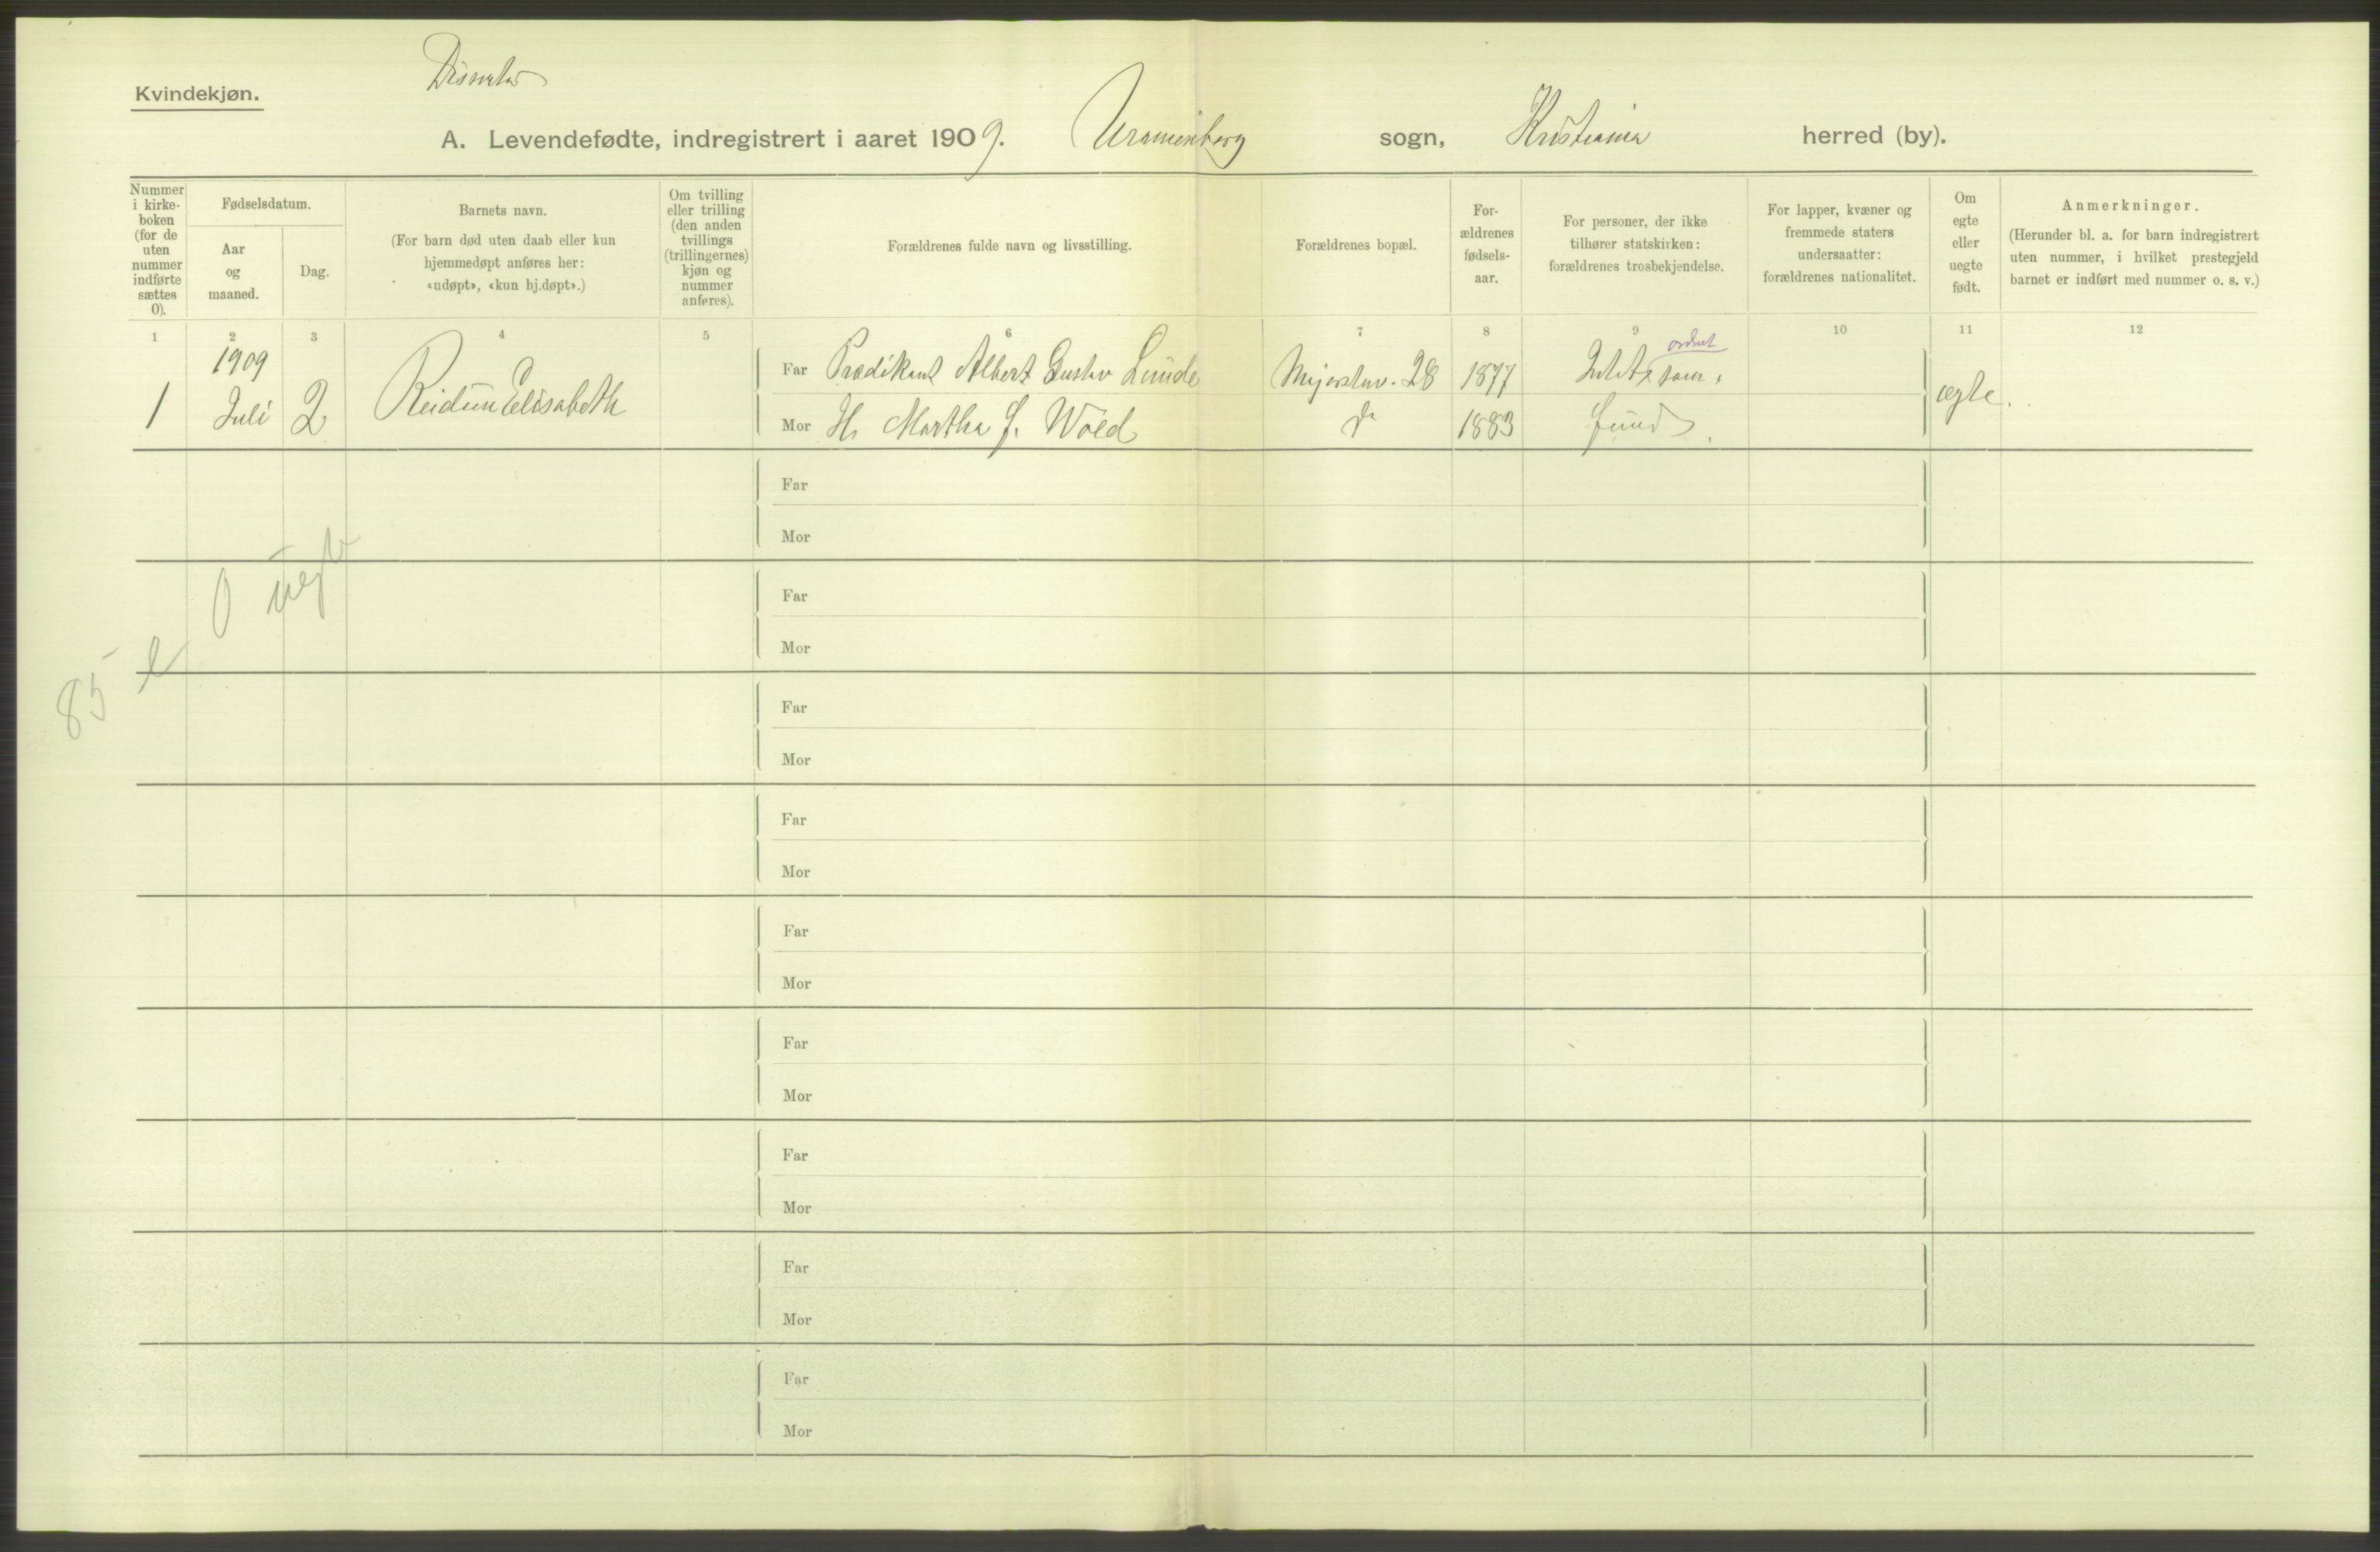 Kvindekjøn.
Dissenter
A. Levendefødte, indregistrert i aaret 1909. Uranienborg sogn, Kristiania herred (by).
Nummer i kirkeboken (for de uten nummer indførte sættes 0).
Fødselsdatum.
Aar og maaned.
Dag.
Barnets navn.
(For barn død uten daab eller kun hjemmedøpt anføres her: «udøpt», «kun hj.døpt».)
Om tvilling eller trilling (den anden tvillings (trillingernes) kjøn og nummer anføres).
Forældrenes fulde navn og livsstilling.
Forældrenes bopæl.
Forældrenes fødselsaar.
For personer, der ikke tilhører statskirken: forældrenes trosbekjendelse.
For lapper, kvæner og fremmede staters undersaatter: forældrenes nationalitet.
Om egte eller uegte født.
Anmerkninger.
(Herunder bl. a. for barn indregistrert uten nummer, i hvilket prestegjeld barnet er indført med nummer o. s. v.)
1 2 3 4 5 6 7 8 9 10 11 12
1 1909 Juli 2 Reidun Elisabeth
Far Prædikant Albert Gustav Lunde 28 1877 Intet ordnet sam-
Mor H. Martha J. Wold do 1883 fund.
ægte.
Far
Mor
0 uegt
Far
Mor
85 e
Far
Mor
Far
Mor
Far
Mor
Far
Mor
Far
Mor
Far
Mor
Far
Mor